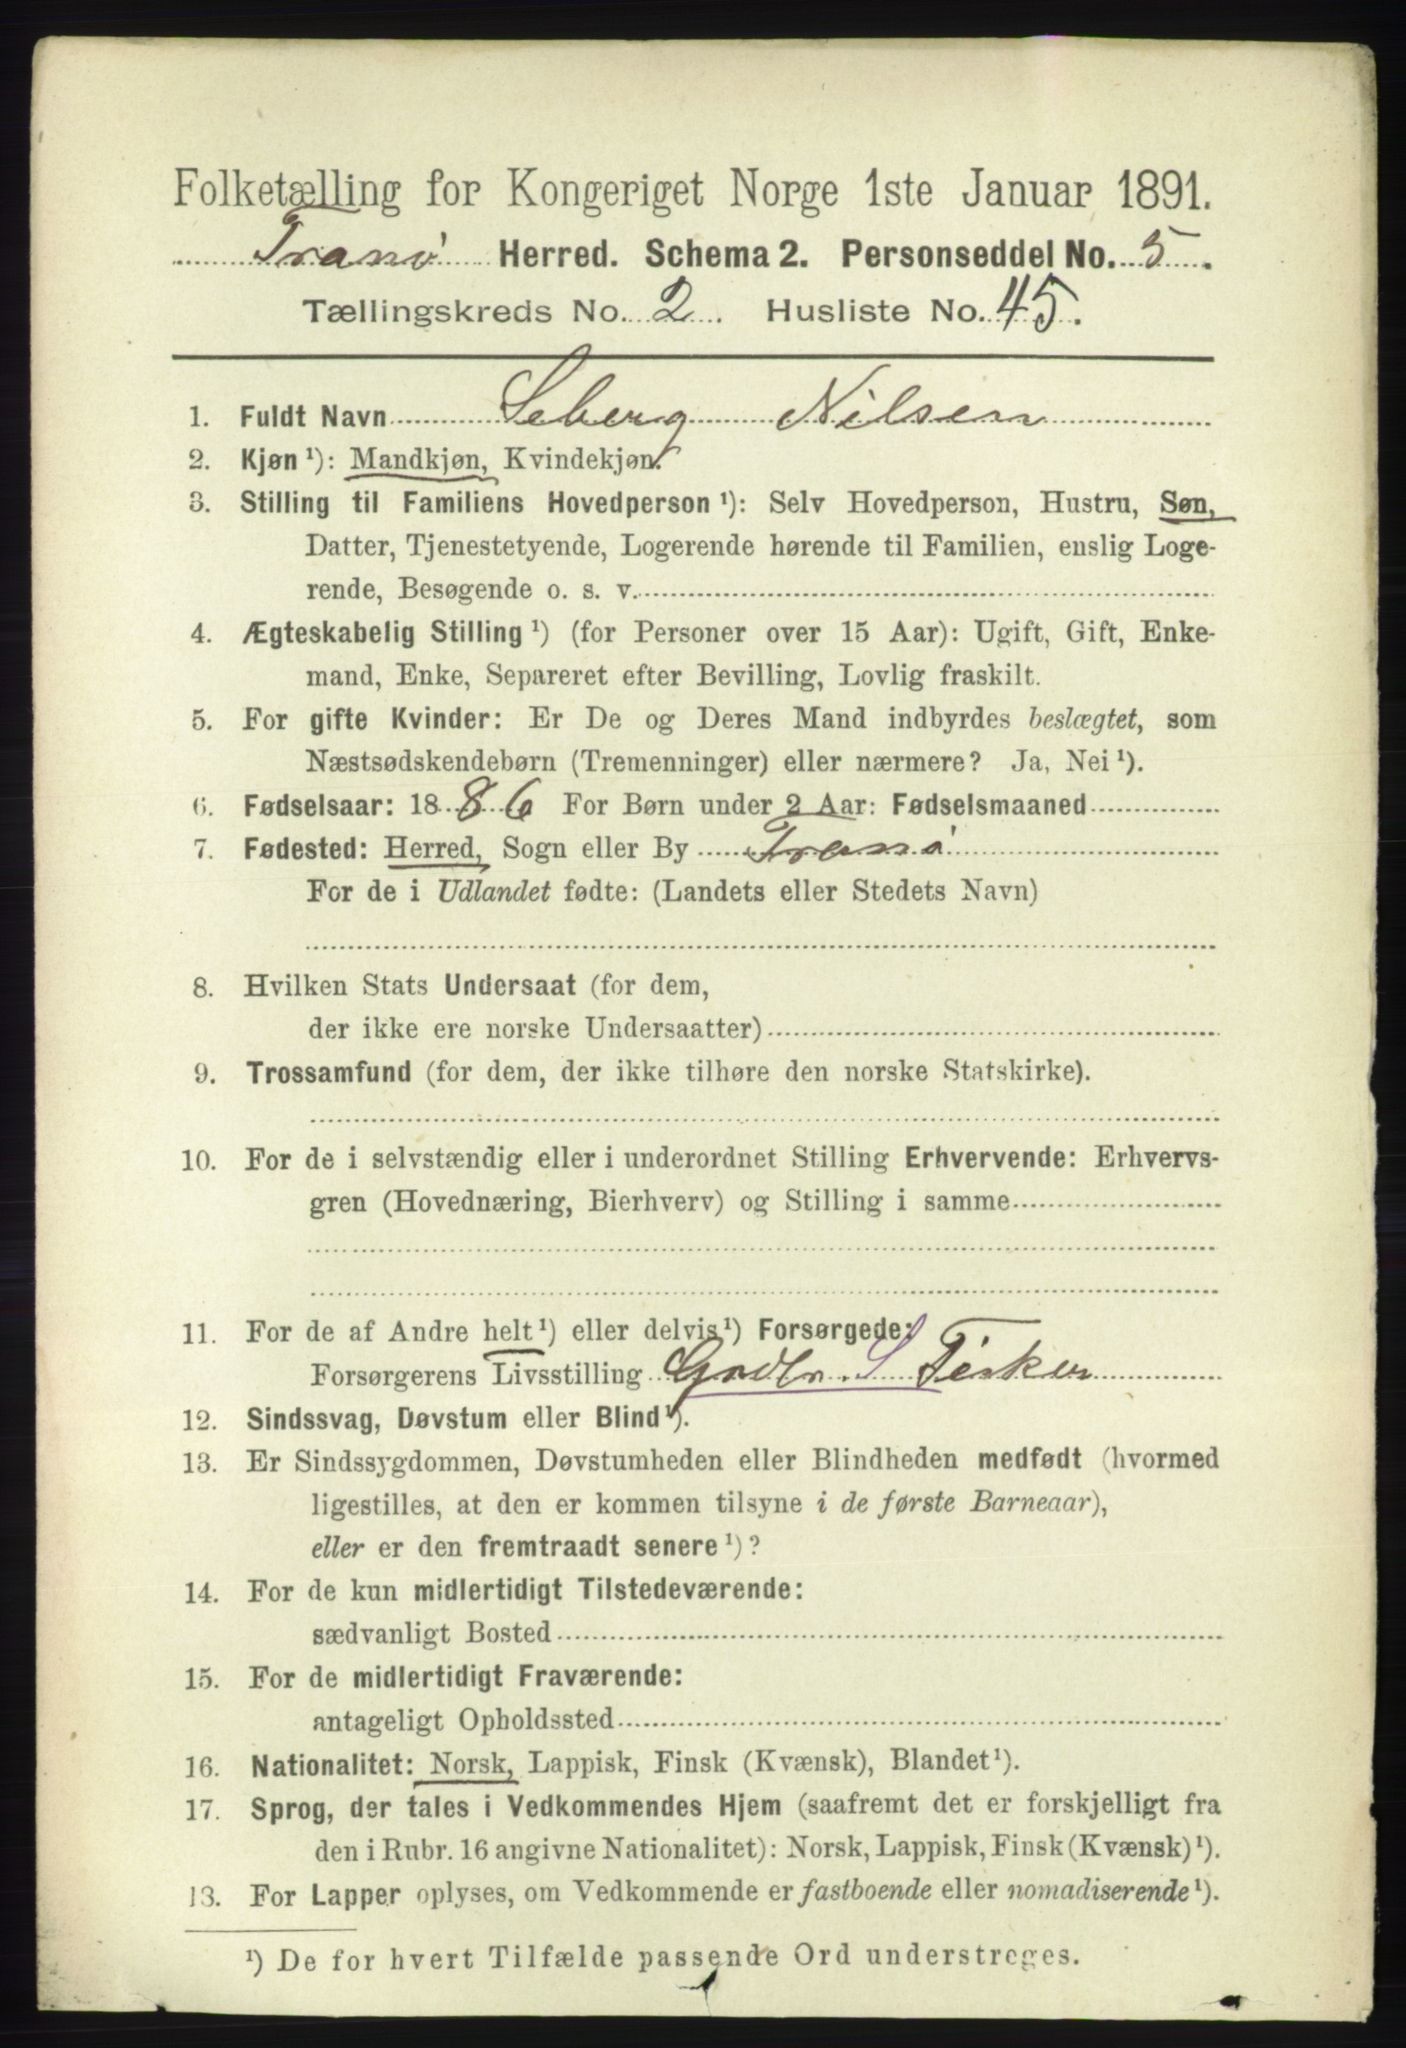 Folketælling for Kongeriget Norge 1ste Januar 1891.
Tranø Herred. Schema 2. Personseddel No. 5.
Tællingskreds No. 2. Husliste No. 45.
1. Fuldt Navn Seberg Nilsen
2. Kjøn ¹): Mandkjøn, Kvindekjøn.
3. Stilling til Familiens Hovedperson ¹): Selv Hovedperson, Hustru, Søn,
Datter, Tjenestetyende, Logerende hørende til Familien, enslig Loge-
rende, Besøgende o. s. v.
4. Ægteskabelig Stilling ¹) (for Personer over 15 Aar): Ugift, Gift, Enke-
mand, Enke, Separeret efter Bevilling, Lovlig fraskilt.
5. For gifte Kvinder: Er De og Deres Mand indbyrdes beslægtet, som
Næstsødskendebørn (Tremenninger) eller nærmere? Ja, Nei ¹).
6. Fødselsaar: 1886 For Børn under 2 Aar: Fødselsmaaned
7. Fødested: Herred, Sogn eller By Tranø
For de i Udlandet fødte: (Landets eller Stedets Navn)
8. Hvilken Stats Undersaat (for dem,
der ikke ere norske Undersaatter)
9. Trossamfund (for dem, der ikke tilhøre den norske Statskirke).
10. For de i selvstændig eller i underordnet Stilling Erhvervende: Erhvervs-
gren (Hovednæring, Bierhverv) og Stilling i samme
11. For de af Andre helt ¹) eller delvis ¹) Forsørgede:
Forsørgerens Livsstilling Grdbr. S Fisker
12. Sindssvag, Døvstum eller Blind ¹).
13. Er Sindssygdommen, Døvstumheden eller Blindheden medfødt (hvormed
ligestilles, at den er kommen tilsyne i de første Barneaar),
eller er den fremtraadt senere ¹)?
14. For de kun midlertidigt Tilstedeværende:
sædvanligt Bosted
15. For de midlertidigt Fraværende:
antageligt Opholdssted
16. Nationalitet: Norsk, Lappisk, Finsk (Kvænsk), Blandet ¹).
17. Sprog, der tales i Vedkommendes Hjem (saafremt det er forskjelligt fra
den i Rubr. 16 angivne Nationalitet): Norsk, Lappisk, Finsk (Kvænsk) ¹).
13. For Lapper oplyses, om Vedkommende er fastboende eller nomadiserende ¹).
¹) De for hvert Tilfælde passende Ord understreges.